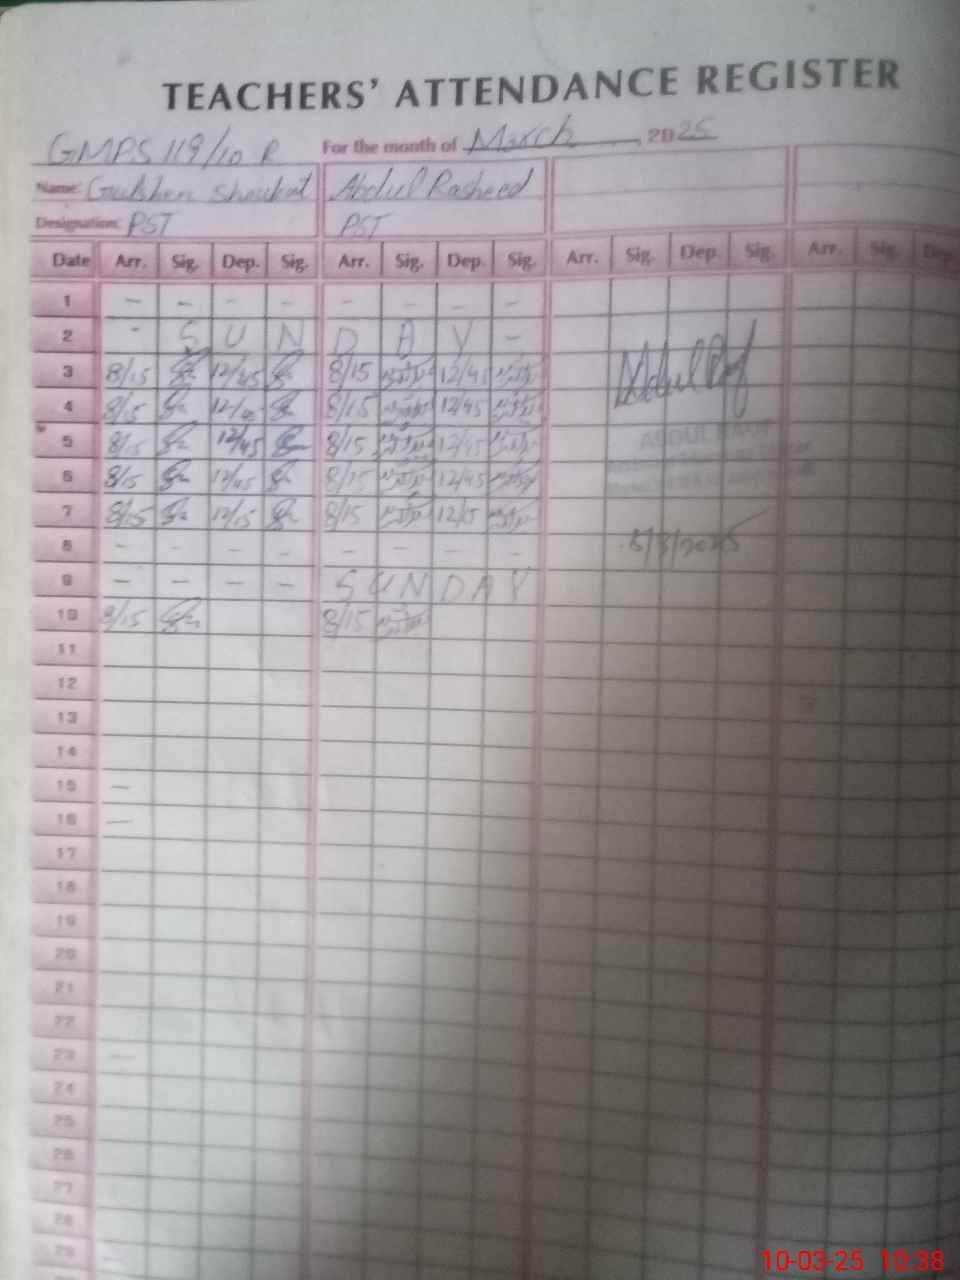 TEACHERS' ATTENDANCE REGISTER
GMPS 119/10 R For the month of March 2025
Name: Gulshan Shoukat Abdul Rasheed
Designation: PST PST
Date Arr. Sig. Dep. Sig. Arr. Sig. Dep. Sig. Arr. Sig. Dep. Sig. Arr. Sig. Dep.
1 - - - - - - - -
2 - S U N D A Y -
3 8/15 12/45 8/15 12/45
4 8/15 12/45 8/15 12/45
5 8/15 12/45 8/15 12/45
ABDUL RAUF
6 8/15 12/45 8/15 12/45
7 8/15 12/15 8/15 12/15
8 - - - - - - - - 8/3/2025
9 - - - - S U N D A Y
10 8/15 8/15
11
12
13
14
15 -
16 -
17
18
19
20
21
22
23 -
24
25
26
27
28
29
10-03-25 10:38